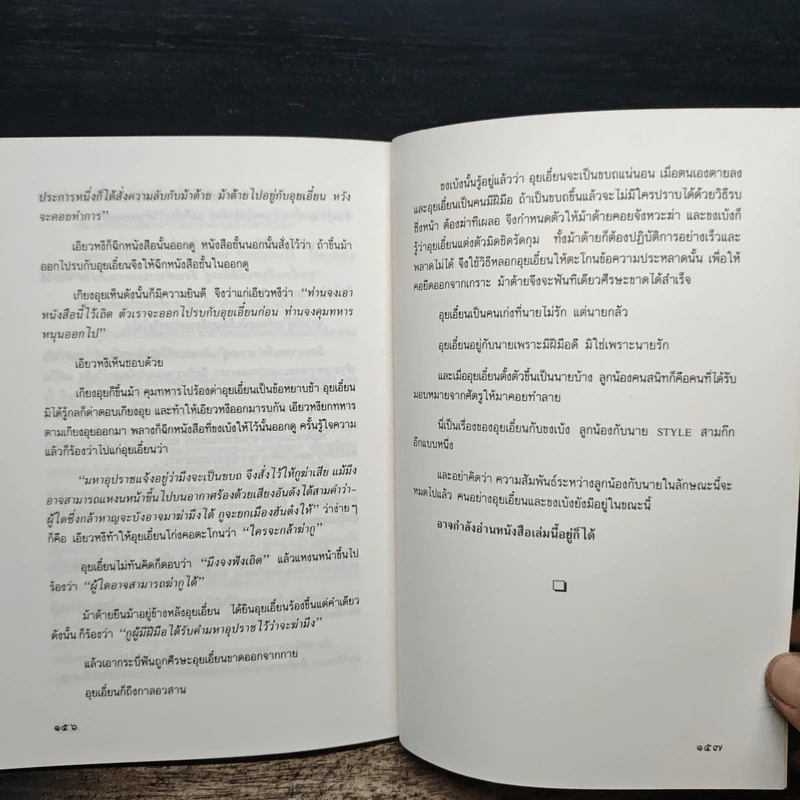 ประการหนึ่งก็ได้สั่งความลับกับม้าต้าย ม้าต้ายไปอยู่กับอุยเอี๋ยน หวัง
จะคอยทำการ”
เอียวหงีก็ฉีกหนังสือนั้นออกดู หนังสือชั้นนอกนั้นสั่งไว้ว่า ถ้าขึ้นม้า
ออกไปรบกับอุยเอี๋ยนจึงให้ฉีกหนังสือชั้นในออกดู
เกียงอุยเห็นดังนั้นก็มีความยินดี จึงว่าแก่เอียวหงีว่า “ท่านจงเอา
หนังสือนี้ไว้เถิด ตัวเราจะออกไปรบกับอุยเอี๋ยนก่อน ท่านจงคุมทหาร
หนุนออกไป”
เอียวหงีเห็นชอบด้วย
เกียงอุยก็ขึ้นม้า คุมทหารไปร้องด่าอุยเอี๋ยนเป็นข้อหยาบช้า อุยเอี๋ยน
มิได้รู้กลก็ด่าตอบเกียงอุย และท้าให้เอียวหงีออกมารบกัน เอียวหงียกทหาร
ตามเกียงอุยออกมา พลางก็ฉีกหนังสือที่ขงเบ้งให้ไว้นั้นออกดู ครั้นรู้ใจความ
แล้วก็ร้องว่าไปแก่อุยเอี๋ยนว่า
“มหาอุปราชแจ้งอยู่ว่ามึงจะเป็นขบถ จึงสั่งไว้ให้กูฆ่าเสีย แม้มึง
อาจสามารถแหงนหน้าขึ้นไปบนอากาศร้องด้วยเสียงอันดังได้สามคำว่า-
ผู้ใดซึ่งกล้าหาญจะบังอาจมาฆ่ามึงได้ กูจะยกเมืองฮันต๋งให้” ว่าง่ายๆ
ก็คือ เอียวหงีทำให้อุยเอี๋ยนโก่งคอตะโกนว่า “ใครจะกล้าฆ่ากู”
อุยเอี๋ยนไม่ทันคิดก็ตอบว่า “มึงจงฟังเถิด” แล้วแหงนหน้าขึ้นไป
ร้องว่า “ผู้ใดอาจสามารถฆ่ากูได้”
ม้าต้ายยืนม้าอยู่ข้างหลังอุยเอี๋ยน ได้ยินอุยเอี๋ยนร้องขึ้นแต่คำเดียว
ดังนั้น ก็ร้องว่า “กูผู้มีฝีมือได้รับคำมหาอุปราชไว้ว่าจะฆ่ามึง”
แล้วเอากระบี่ฟันถูกศีรษะอุยเอี๋ยนขาดออกจากกาย
อุยเอี๋ยนก็ถึงกาลอวสาน
๑๕๖
ขงเบ้งนั้นรู้อยู่แล้วว่า อุยเอี๋ยนจะเป็นขบถแน่นอน เมื่อตนเองตายลง
และอุยเอี๋ยนเป็นคนมีฝีมือ ถ้าเป็นขบถขึ้นแล้วจะไม่มีใครปราบได้ด้วยวิธีรบ
ซึ่งหน้า ต้องฆ่าทีเผลอ จึงกำหนดตัวให้ม้าต้ายคอยจังหวะฆ่า และขงเบ้งก็
รู้ว่าอุยเอี๋ยนแต่งตัวมิดชิดรัดกุม ทั้งม้าต้ายก็ต้องปฏิบัติการอย่างเร็วและ
พลาดไม่ได้ จึงใช้วิธีหลอกอุยเอี๋ยนให้ตะโกนข้อความประหลาดนั้น เพื่อให้
คอยืดออกจากเกราะ ม้าต้ายจึงจะฟันทีเดียวศีรษะขาดได้สำเร็จ
อุยเอี๋ยนเป็นคนเก่งที่นายไม่รัก แต่นายกลัว
อุยเอี๋ยนอยู่กับนายเพราะมีฝีมือดี มิใช่เพราะนายรัก
และเมื่ออุยเอี๋ยนตั้งตัวขึ้นเป็นนายบ้าง ลูกน้องคนสนิทก็คือคนที่ได้รับ
มอบหมายจากศัตรูให้มาคอยทำลาย
นี่เป็นเรื่องของอุยเอี๋ยนกับขงเบ้ง ลูกน้องกับนาย STYLE สามก๊ก
อีกแบบหนึ่ง
และอย่าคิดว่า ความสัมพันธ์ระหว่างลูกน้องกับนายในลักษณะนี้จะ
หมดไปแล้ว คนอย่างอุยเอี๋ยนและขงเบ้งยังมีอยู่ในขณะนี้
อาจกำลังอ่านหนังสือเล่มนี้อยู่ก็ได้
๑๕๗